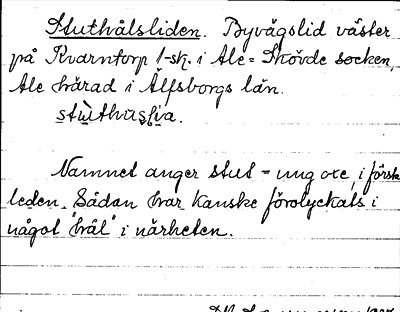 Stuthålsliden. Byvägslid väster
på Kvarntorp 1-sk. i Ale-Skövde socken,
Ale härad i Älfsborgs län.
Namnet anger stut = ung oxe, i första
leden. Sådan har kanske förolyckats i
något "hål" i närheten.